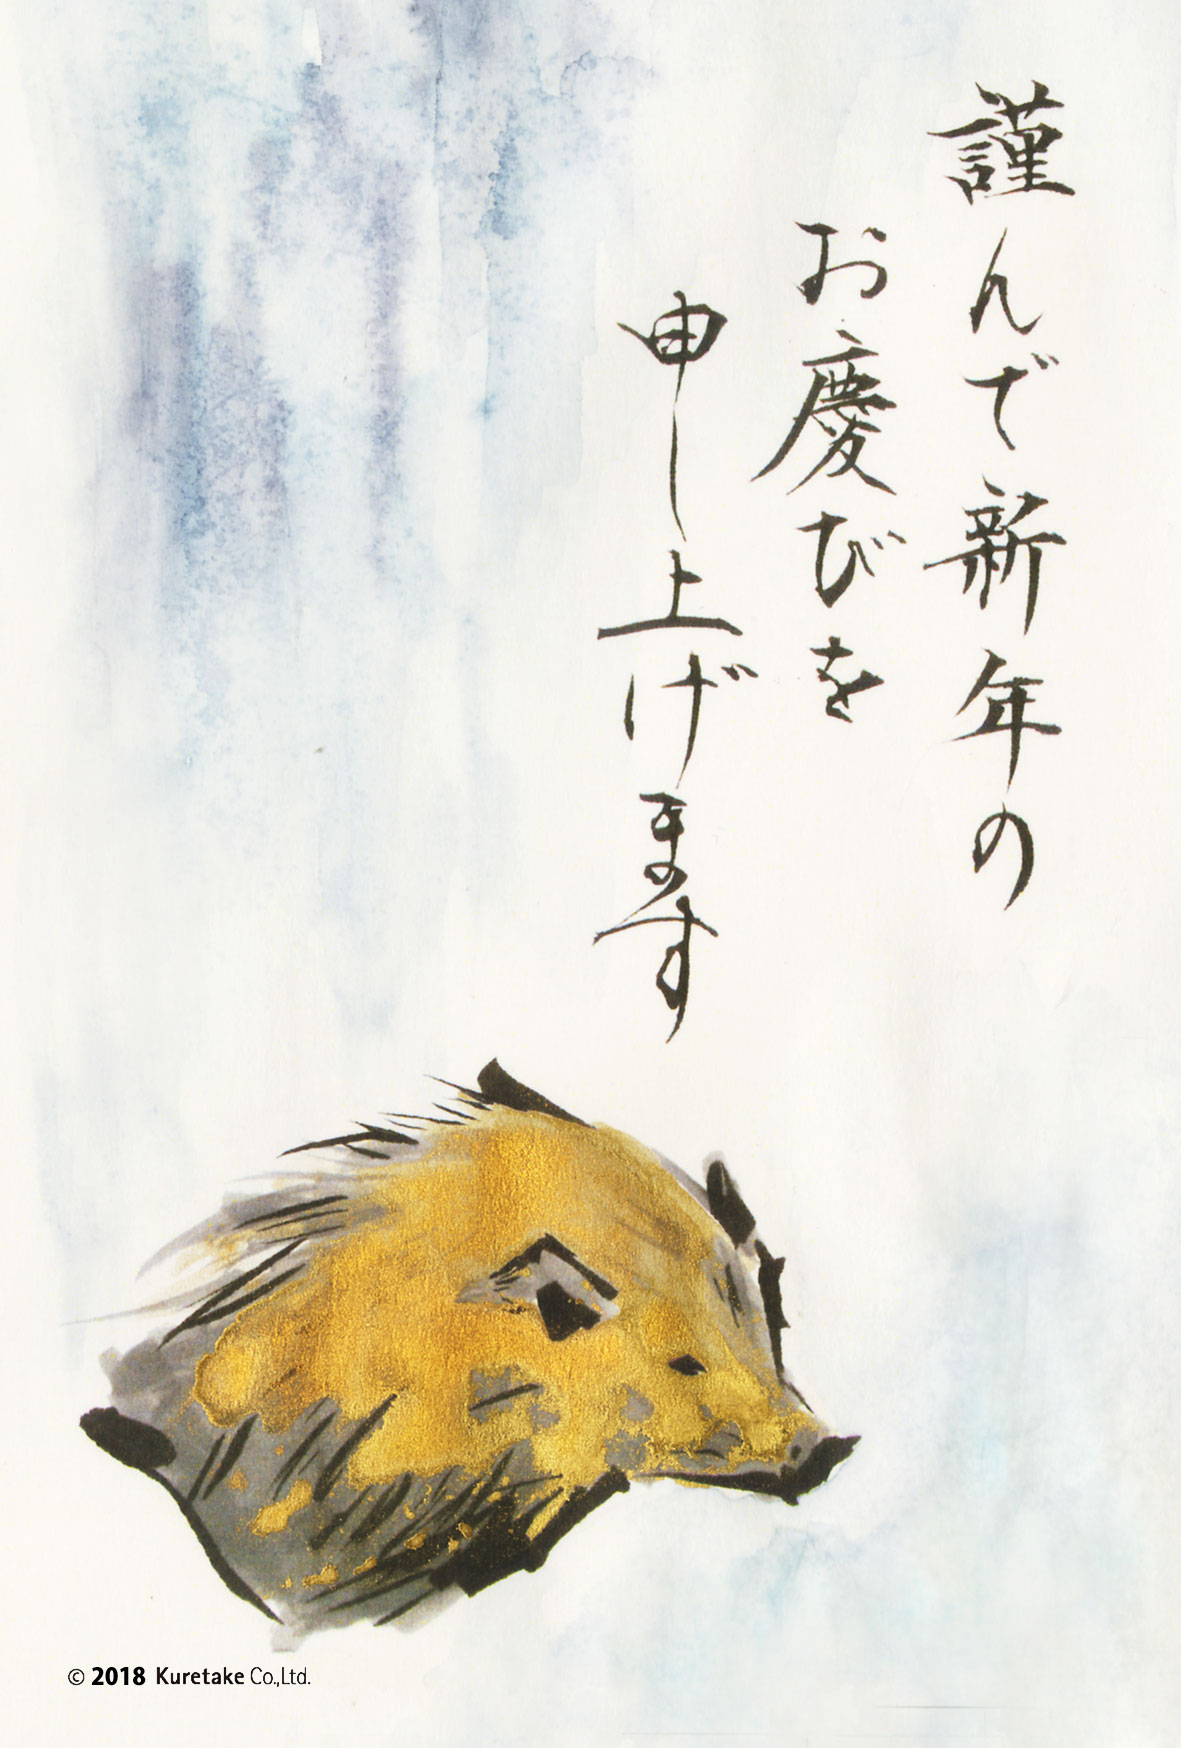 謹んで新年の
お慶びを
申し上げます
© 2018 Kuretake Co.,Ltd.